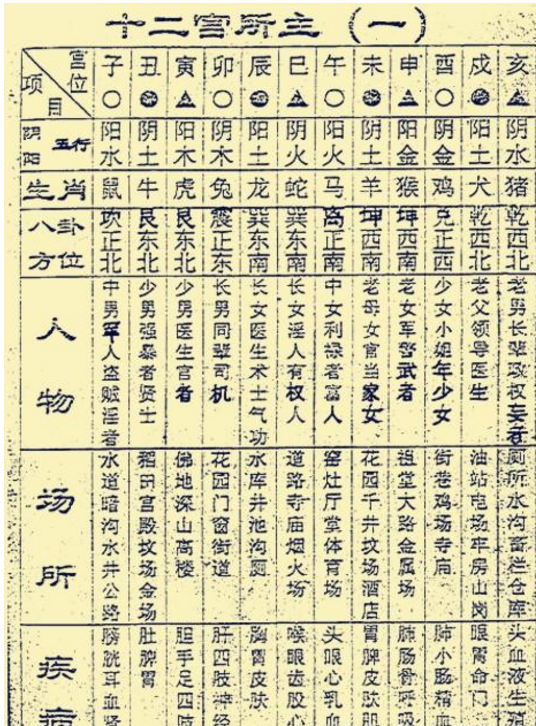 十二宫所主（一）
宫位 项目 子 丑 寅 卯 辰 巳 午 未 申 酉 戌 亥
阴阳五行 阳水 阴土 阳木 阴木 阳土 阴火 阳火 阴土 阳金 阴金 阳土 阴水
生肖 鼠 牛 虎 兔 龙 蛇 马 羊 猴 鸡 犬 猪
八卦方位 坎正北 艮东北 艮东北 震正东 巽东南 巽东南 离正南 坤西南 坤西南 兑正西 乾西北 乾西北
人物 中男罕人盗贼淫者 少男强暴者贤士 少男医生官者 长男同辈司机 长女医生术士气功 长女淫人有权人 中女利禄者富人 老母女官当家女 老女军警武者 少女小姐年少女 老父领导医生 老男长辈政权妄者
场所 水道暗沟水井公路 稻田宫殿坟场金场 佛地深山高楼 花园门窗街道 水库井池沟厕 道路寺庙烟火场 窑灶厅堂体育场 花园千井坟场酒店 祖堂大路金属场 街巷鸡场寺庙 油站电场牢房山岗 厕所水沟畜栏仓库
疾病 膀胱耳血肾 肚脾胃 胆手足四肢 肝四肢神经 胸胃皮肤 喉眼齿股心 头眼心乳血 胃脾皮肤胆 肺肠骨呼吸 肺小肠精血 眼胃命门 头血液生